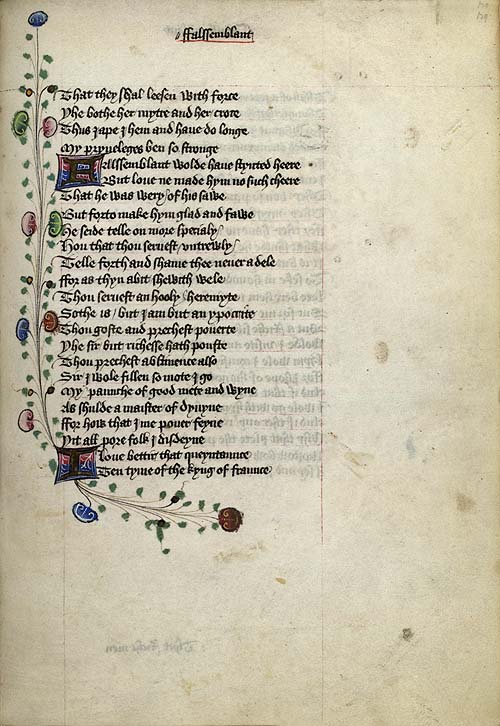 ffalssemblant
That they shal leesen with force
Yhe bothe her mytre and her croce
Thus jape j hem and haue do longe
My pryueleges ben so stronge
Falssemblant wolde haue stynted heere
But loue ne made hym no such cheere
That he was wery of his sawe
But forto make hym glad and fawe
He seide telle on more specialy
Hou that thou seruest vntrewly
Telle forth and shame thee neuer a dele
ffor as thyn abit shewith wele
Thou seruest an hooly heremyte
Sothe is / but j am but an ypocrite
Thou goste and prechest pouerte
Yhe sir but richesse hath pouste
Thou prechest abstinence also
Sir j wole fillen so mote j go
My paunche of good mete and wyne
As shulde a maister of dyuyne
ffor how that j me pouer feyne
Yit all pore folk j disdeyne
I loue bettir that queyntaunce
Ten tyme of the kyng of fraunce